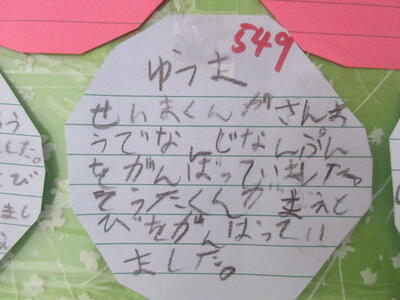 549
ゆうま
せいまくんがさんよ
うでなんじなんぷん
をがんばっていました。
そうたくんがまえと
びをがんばってい
ました。
した。
とび